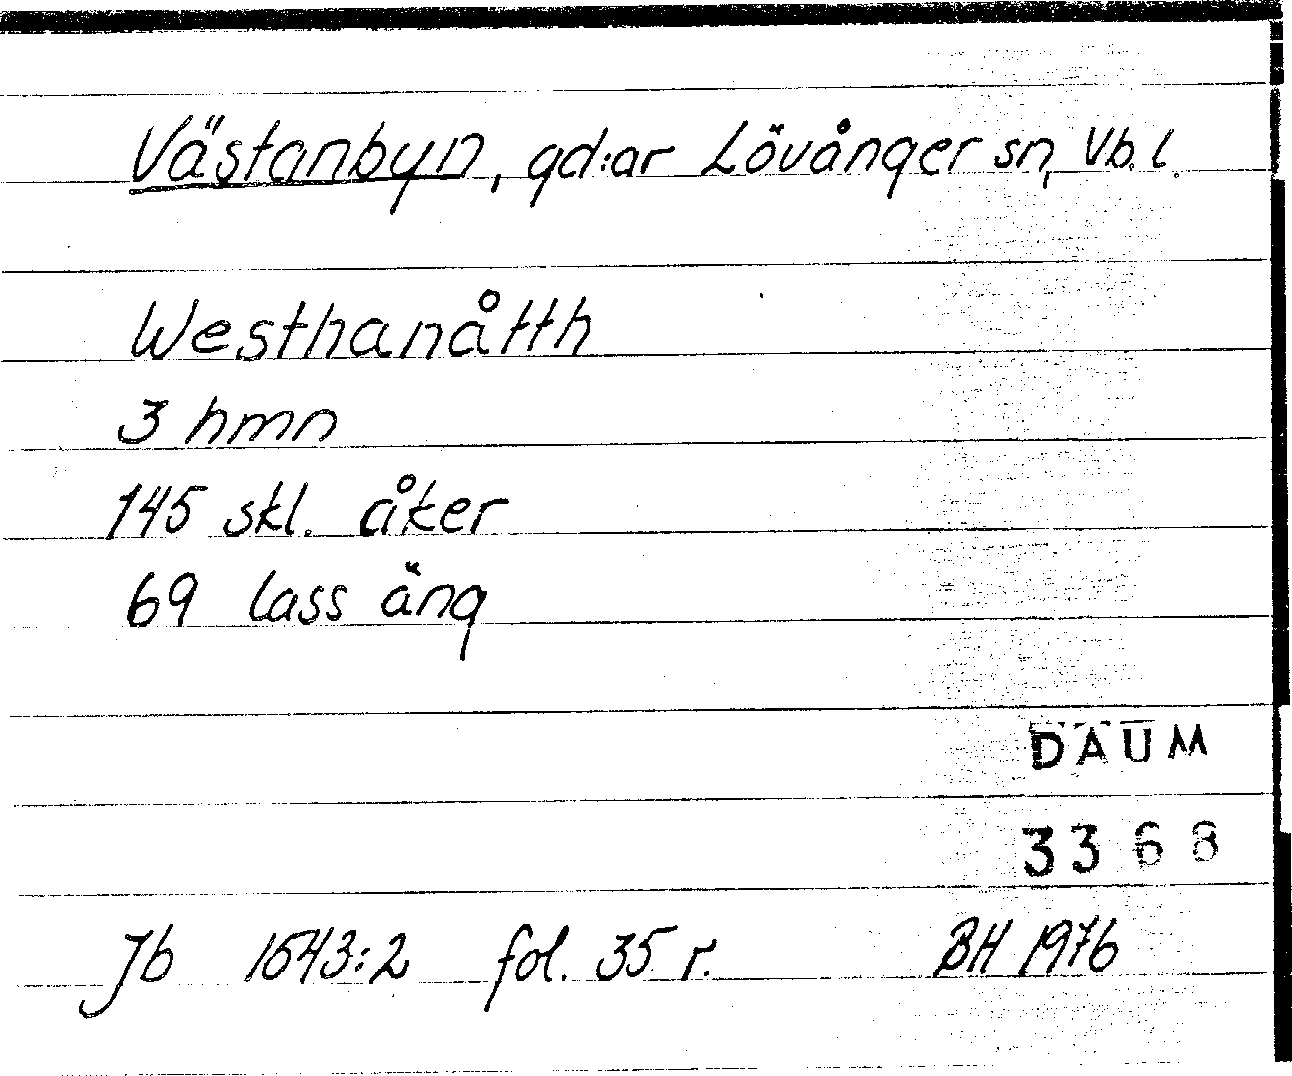 Västanbyn, gd:ar Lövånger sn, Vb. l.
Westhanåtth
3 hmn
145 skl. åker
69 lass äng
DAUM
3368
Jb 1543:2 fol. 35 r. BH 1976